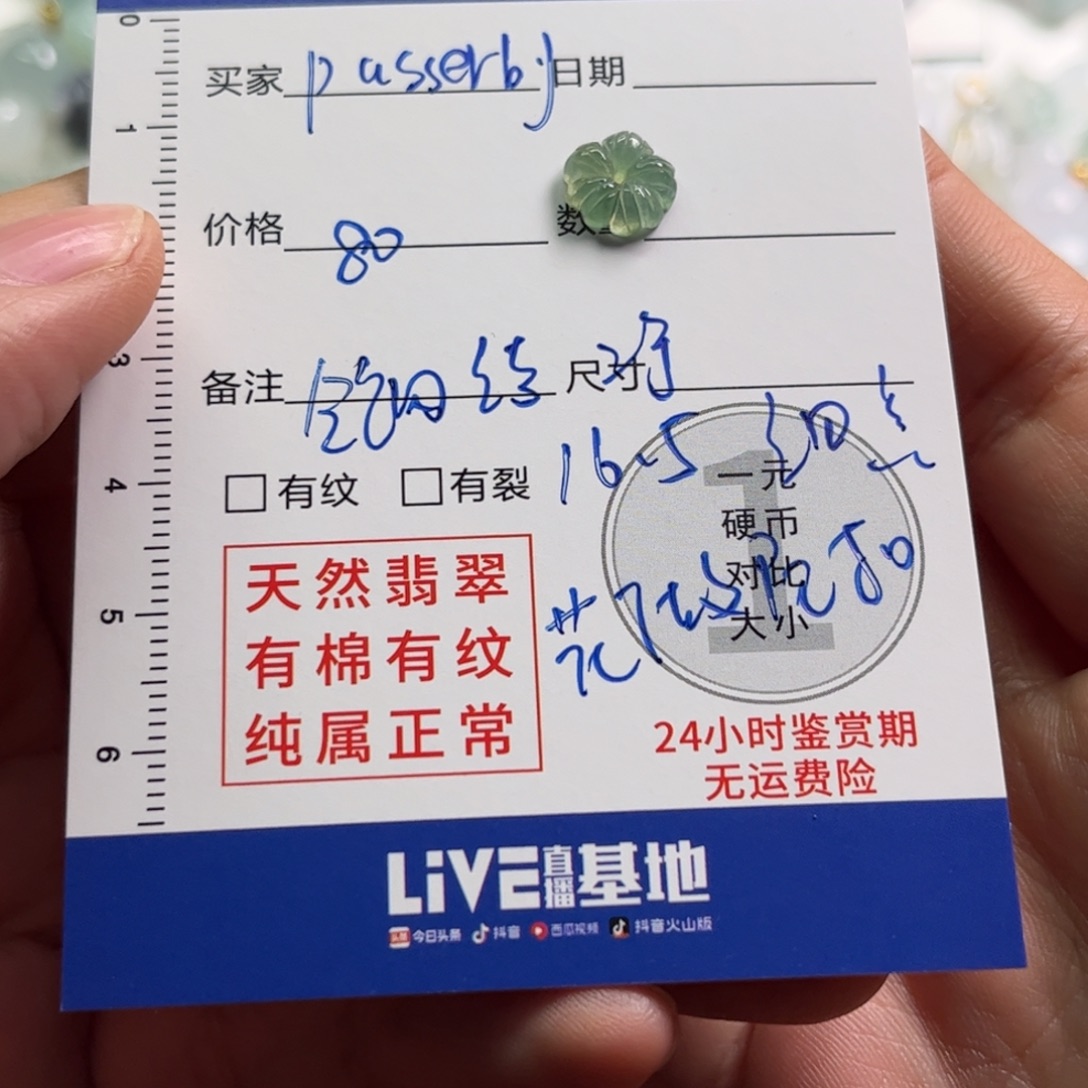 0
1
3
4
5
6
买家 passerby 日期
价格 80 数
备注 尺寸
16.5
□有纹 □有裂
一元
硬币
对比
大小
1
天然翡翠
有棉有纹
纯属正常
24小时鉴赏期
无运费险
LiVE直播基地
头条 今日头条 抖音 西瓜视频 抖音火山版